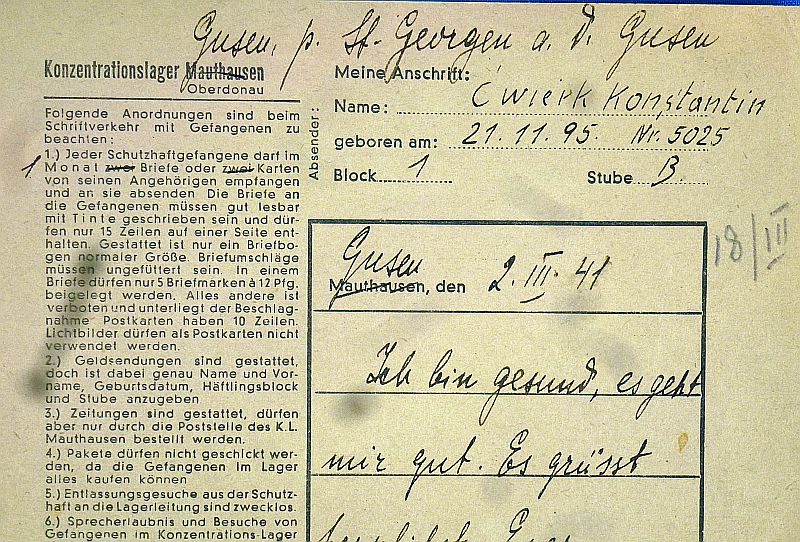 Gusen, p. St. Georgen a. d. Gusen
Konzentrationslager Mauthausen
Oberdonau
Folgende Anordnungen sind beim
Schriftverkehr mit Gefangenen zu
beachten:
1.) Jeder Schutzhaftgefangene darf im
1 Monat zwei Briefe oder zwei Karten
von seinen Angehörigen empfangen
und an sie absenden. Die Briefe an
die Gefangenen müssen gut lesbar
mit Tinte geschrieben sein und dür-
fen nur 15 Zeilen auf einer Seite ent-
halten. Gestattet ist nur ein Briefbo-
gen normaler Größe. Briefumschläge
müssen ungefüttert sein. In einem
Briefe dürfen nur 5 Briefmarken à 12 Pfg.
beigelegt werden. Alles andere ist
verboten und unterliegt der Beschlag-
nahme Postkarten haben 10 Zeilen.
Lichtbilder dürfen als Postkarten nicht
verwendet werden.
2.) Geldsendungen sind gestattet,
doch ist dabei genau Name und Vor-
name, Geburtsdatum, Häftlingsblock
und Stube anzugeben
3.) Zeitungen sind gestattet, dürfen
aber nur durch die Poststelle des K.L.
Mauthausen bestellt werden.
4.) Pakete dürfen nicht geschickt wer-
den, da die Gefangenen im Lager
alles kaufen können
5.) Entlassungsgesuche aus der Schutz-
haft an die Lagerleitung sind zwecklos.
6.) Sprecherlaubnis und Besuche von
Gefangenen im Konzentrations-Lager
Absender:
Meine Anschrift:
Name: Ćwierk Konstantin
geboren am: 21.11.95. Nr. 5025
Block 1 Stube B.
18/III
Gusen
Mauthausen, den 2. III. 41
Ich bin gesund, es geht
mir gut. Es grüsst
herzlich Euer